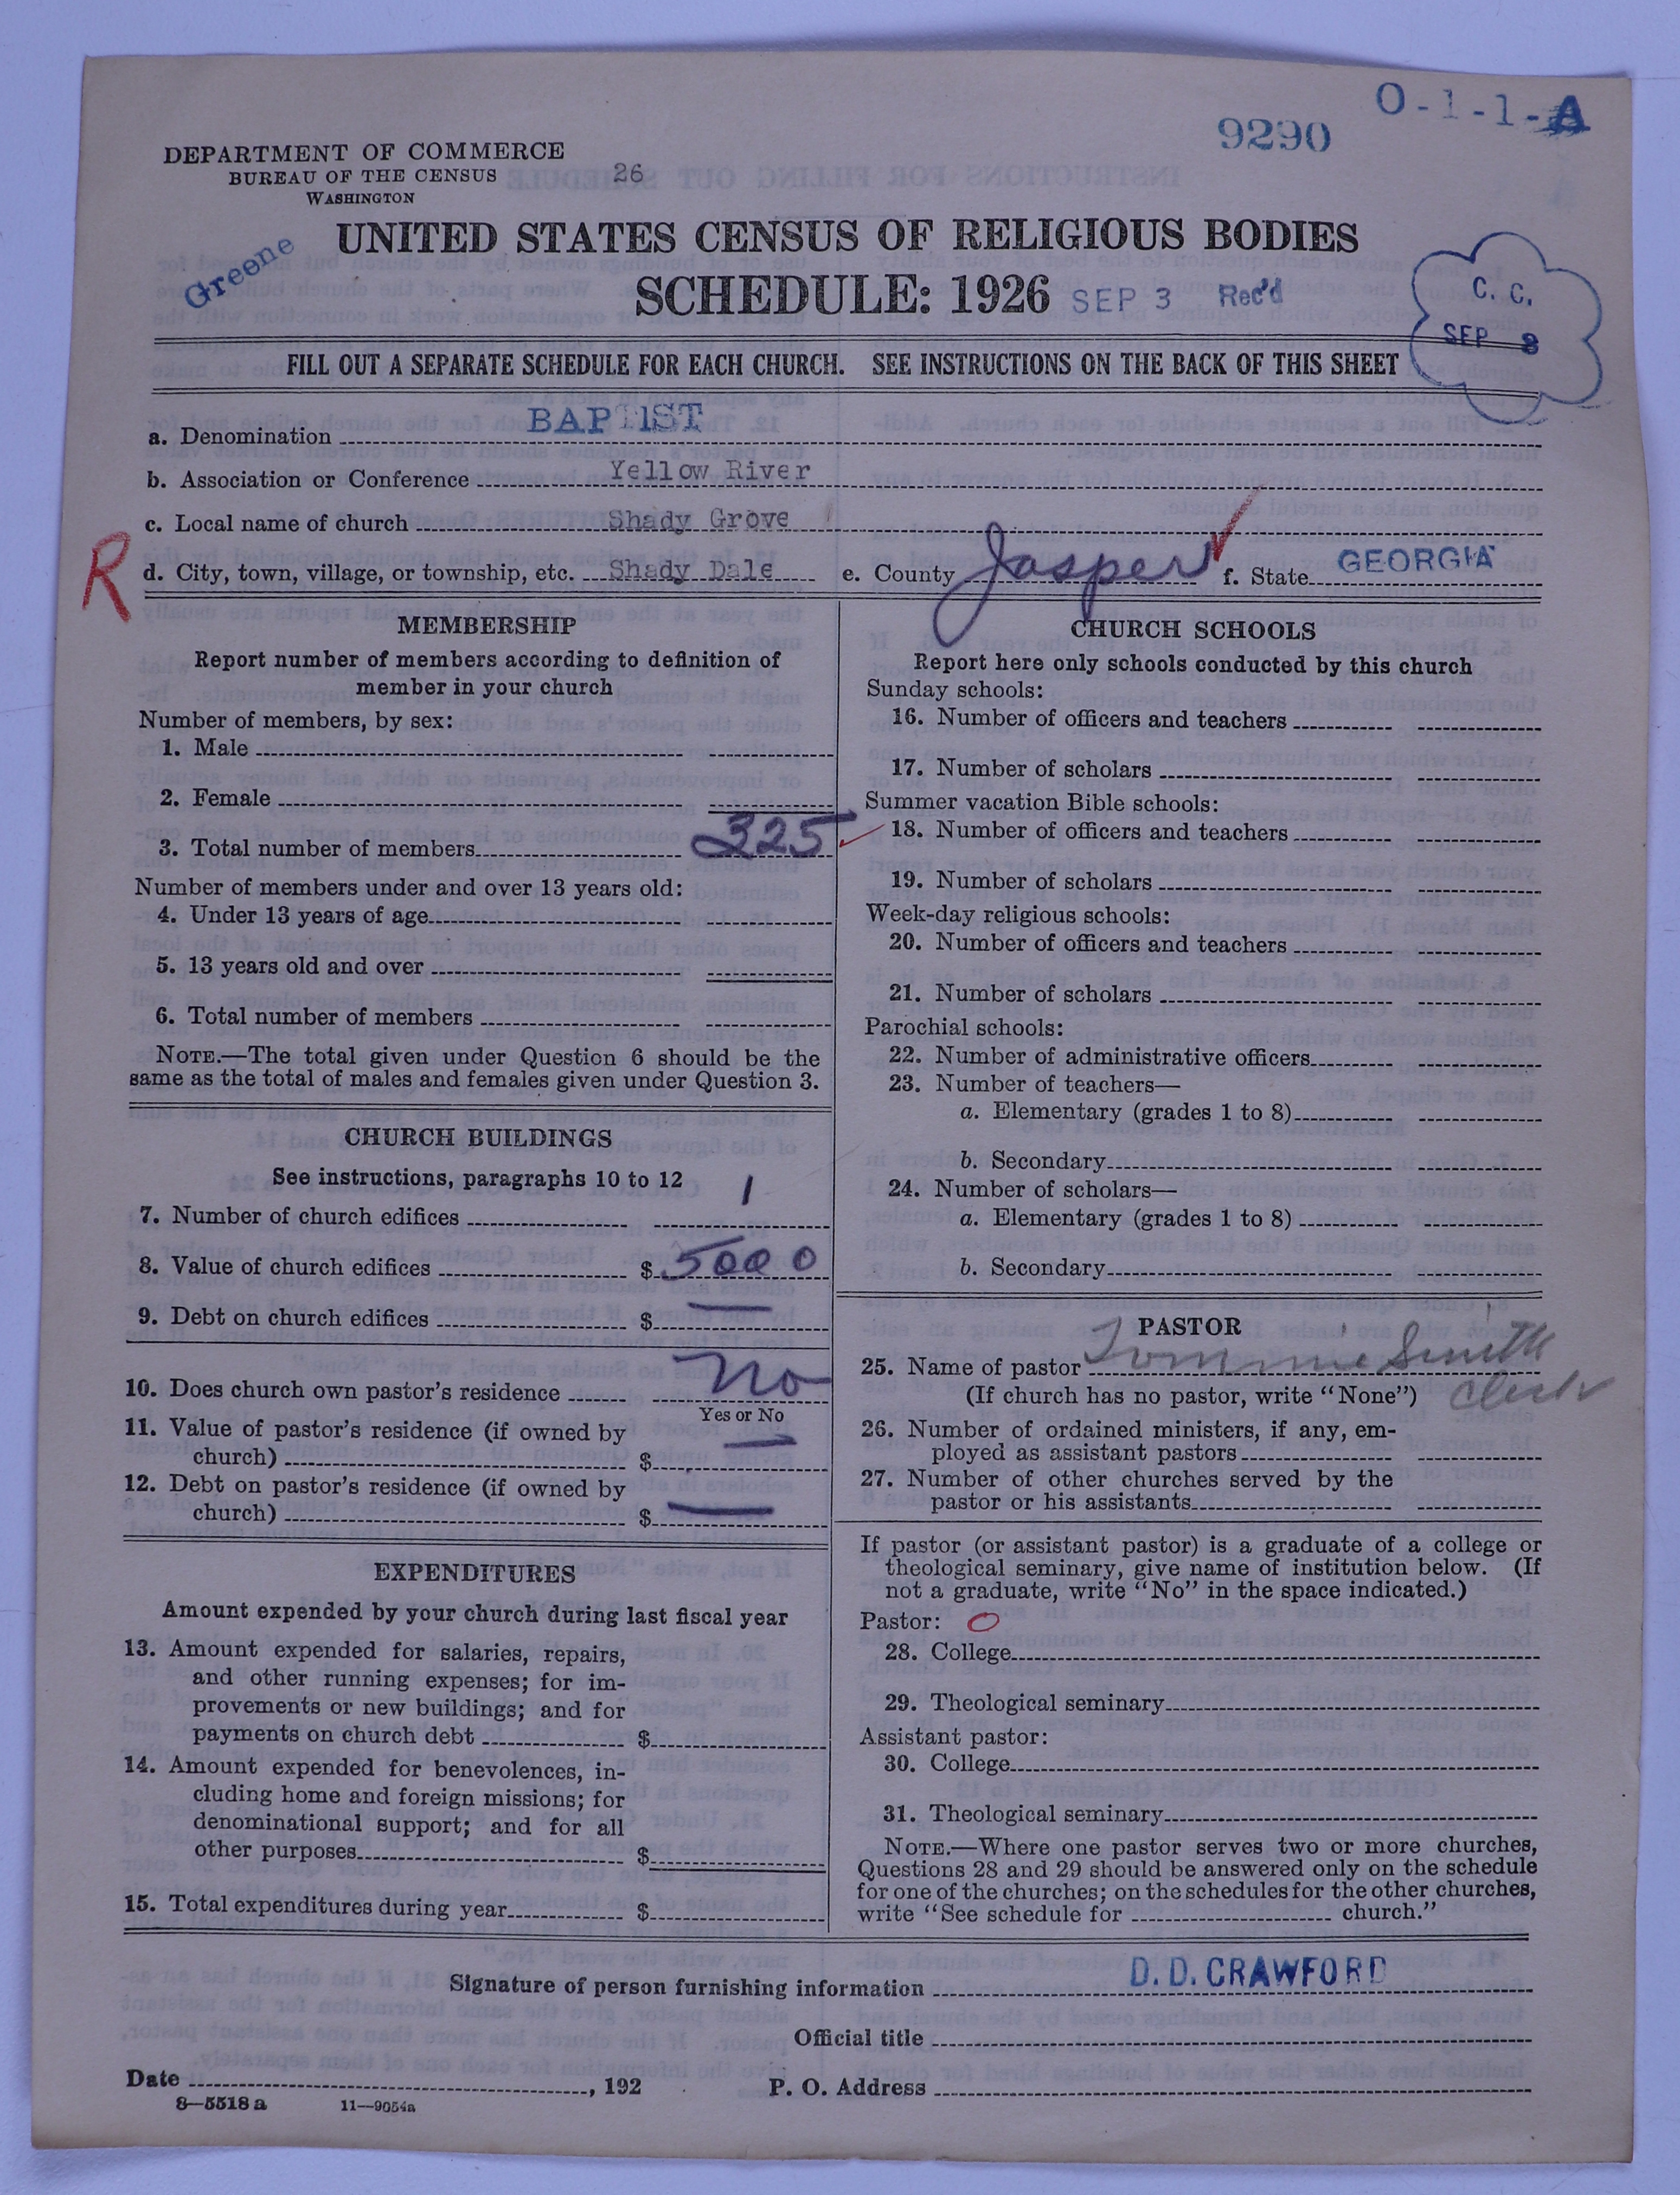 O-1-1-A
9290
DEPARTMENT OF COMMERCE
BUREAU OF THE CENSUS
WASHINGTON
26
Greene
UNITED STATES CENSUS OF RELIGIOUS BODIES
SCHEDULE: 1926 SEP 3 Rec'd
C. C.
SEP 8
FILL OUT A SEPARATE SCHEDULE FOR EACH CHURCH. SEE INSTRUCTIONS ON THE BACK OF THIS SHEET
a. Denomination BAPTIST
b. Association or Conference Yellow River
c. Local name of church Shady Grove
R
d. City, town, village, or township, etc. Shady Dale e. County Jasper f. State GEORGIA
MEMBERSHIP
Report number of members according to definition of
member in your church
Number of members, by sex:
1. Male
2. Female
3. Total number of members 325
Number of members under and over 13 years old:
4. Under 13 years of age
5. 13 years old and over
6. Total number of members
NOTE.—The total given under Question 6 should be the
same as the total of males and females given under Question 3.
CHURCH BUILDINGS
See instructions, paragraphs 10 to 12
7. Number of church edifices 1
8. Value of church edifices $ 5000
9. Debt on church edifices $ —
10. Does church own pastor's residence No
Yes or No
11. Value of pastor's residence (if owned by
church) $ —
12. Debt on pastor's residence (if owned by
church) $ —
EXPENDITURES
Amount expended by your church during last fiscal year
13. Amount expended for salaries, repairs,
and other running expenses; for im-
provements or new buildings; and for
payments on church debt $
14. Amount expended for benevolences, in-
cluding home and foreign missions; for
denominational support; and for all
other purposes $
15. Total expenditures during year $
CHURCH SCHOOLS
Report here only schools conducted by this church
Sunday schools:
16. Number of officers and teachers
17. Number of scholars
Summer vacation Bible schools:
18. Number of officers and teachers
19. Number of scholars
Week-day religious schools:
20. Number of officers and teachers
21. Number of scholars
Parochial schools:
22. Number of administrative officers
23. Number of teachers—
a. Elementary (grades 1 to 8)
b. Secondary
24. Number of scholars—
a. Elementary (grades 1 to 8)
b. Secondary
PASTOR
25. Name of pastor Tommie Smith
(If church has no pastor, write "None") Clerk
26. Number of ordained ministers, if any, em-
ployed as assistant pastors
27. Number of other churches served by the
pastor or his assistants
If pastor (or assistant pastor) is a graduate of a college or
theological seminary, give name of institution below. (If
not a graduate, write "No" in the space indicated.)
Pastor: O
28. College
29. Theological seminary
Assistant pastor:
30. College
31. Theological seminary
NOTE.—Where one pastor serves two or more churches,
Questions 28 and 29 should be answered only on the schedule
for one of the churches; on the schedules for the other churches,
write "See schedule for church."
Signature of person furnishing information D. D. CRAWFORD
Official title
Date , 192 P. O. Address
8—5518 a 11—9054a